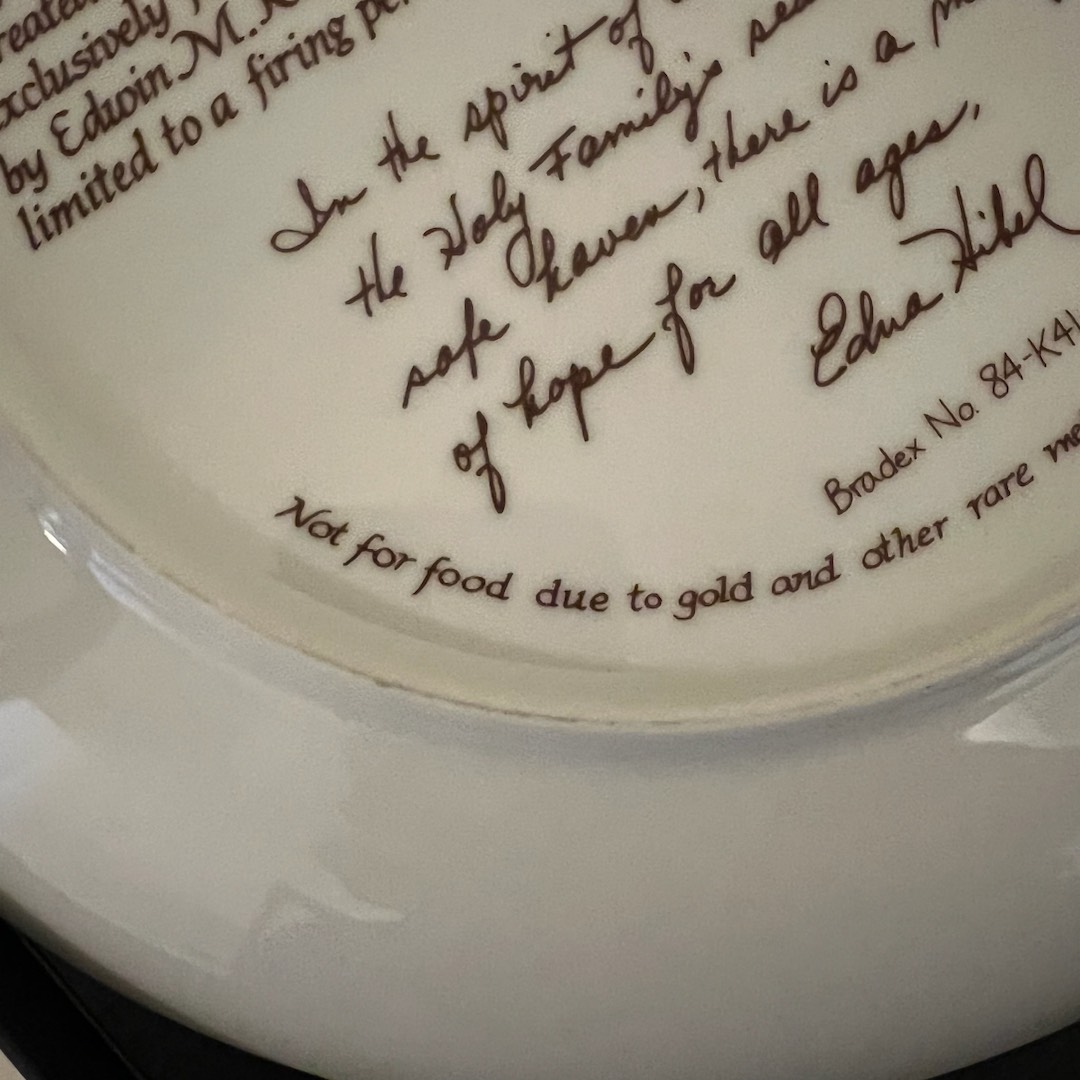 exclusively
by Edwin M.
limited to a firing
In the spirit of
the Holy Family's
safe haven, there is a
of hope for all ages,
Edna Hibel
Bradex No. 84-K41
Not for food due to gold and other rare